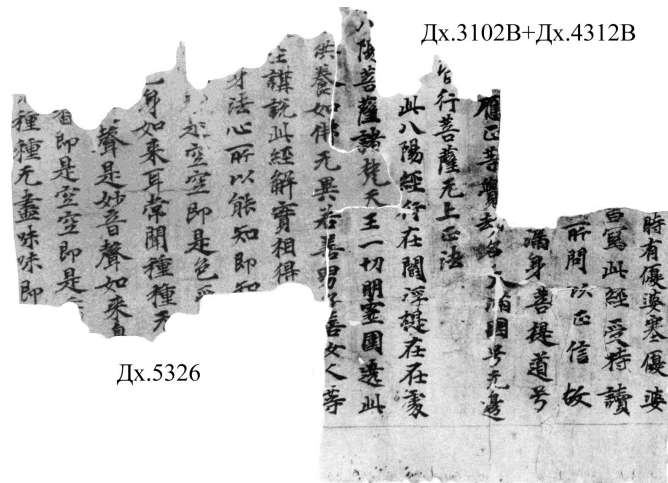 Дх.3102В+Дх.4312В
時有優婆塞優婆
寫此經受持讀
所問以正信故
滿身菩提道号
應正菩覺 名 滿國号无邊
皆行菩薩无上正法
此八陽經行在閻浮提在在處
八陽菩薩諸梵天王一切明靈圍遶此
供養如佛无異若善男子善女人等
講說此經解實相得
身法心所以能知即知
空空即是色
身如来耳常聞種種无
聲是妙音聲如来
即是空空即是
種種无盡味味即
Дх.5326